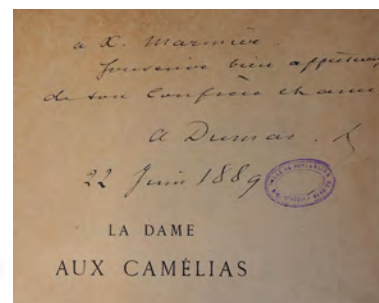 a X. Marmier.
Souvenir bien affectueux
de son confrère et ami
A Dumas. f
22 Juin 1889
LA DAME
AUX CAMÉLIAS